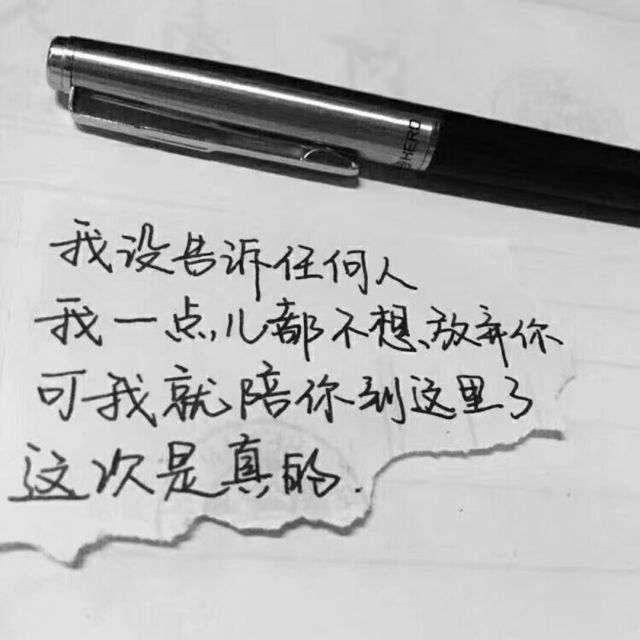 HERO
我没告诉任何人
我一点儿都不想放弃你
可我就陪你到这里了
这次是真的.